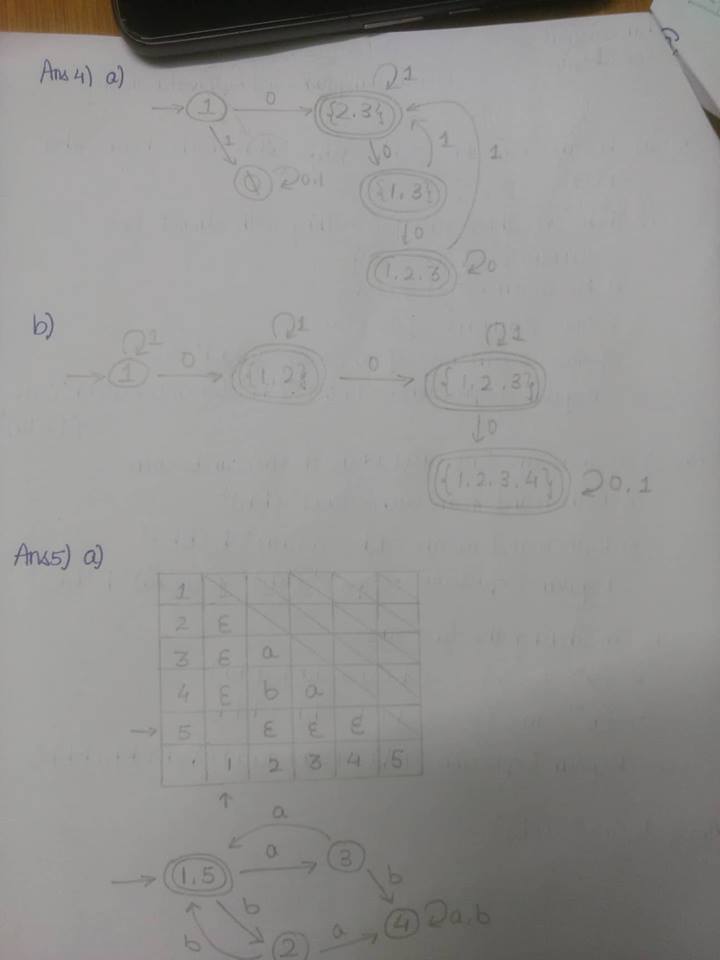 Ans4) a)
1
→ 1 0 {2.3}
1 0 1 1
ϕ 0,1 {1,3}
0
1.2.3 0
b)
1 1 1
→ 1 0 {1,2} 0 {1,2.3}
0
{1.2.3.4} 0.1
Ans5) a)
1
2 ε
3 ε a
4 ε b a
→ 5 ε ε ε
. 1 2 3 4 5
↑
a
→ 1,5 a 3
b b
b 2 a 4 a,b